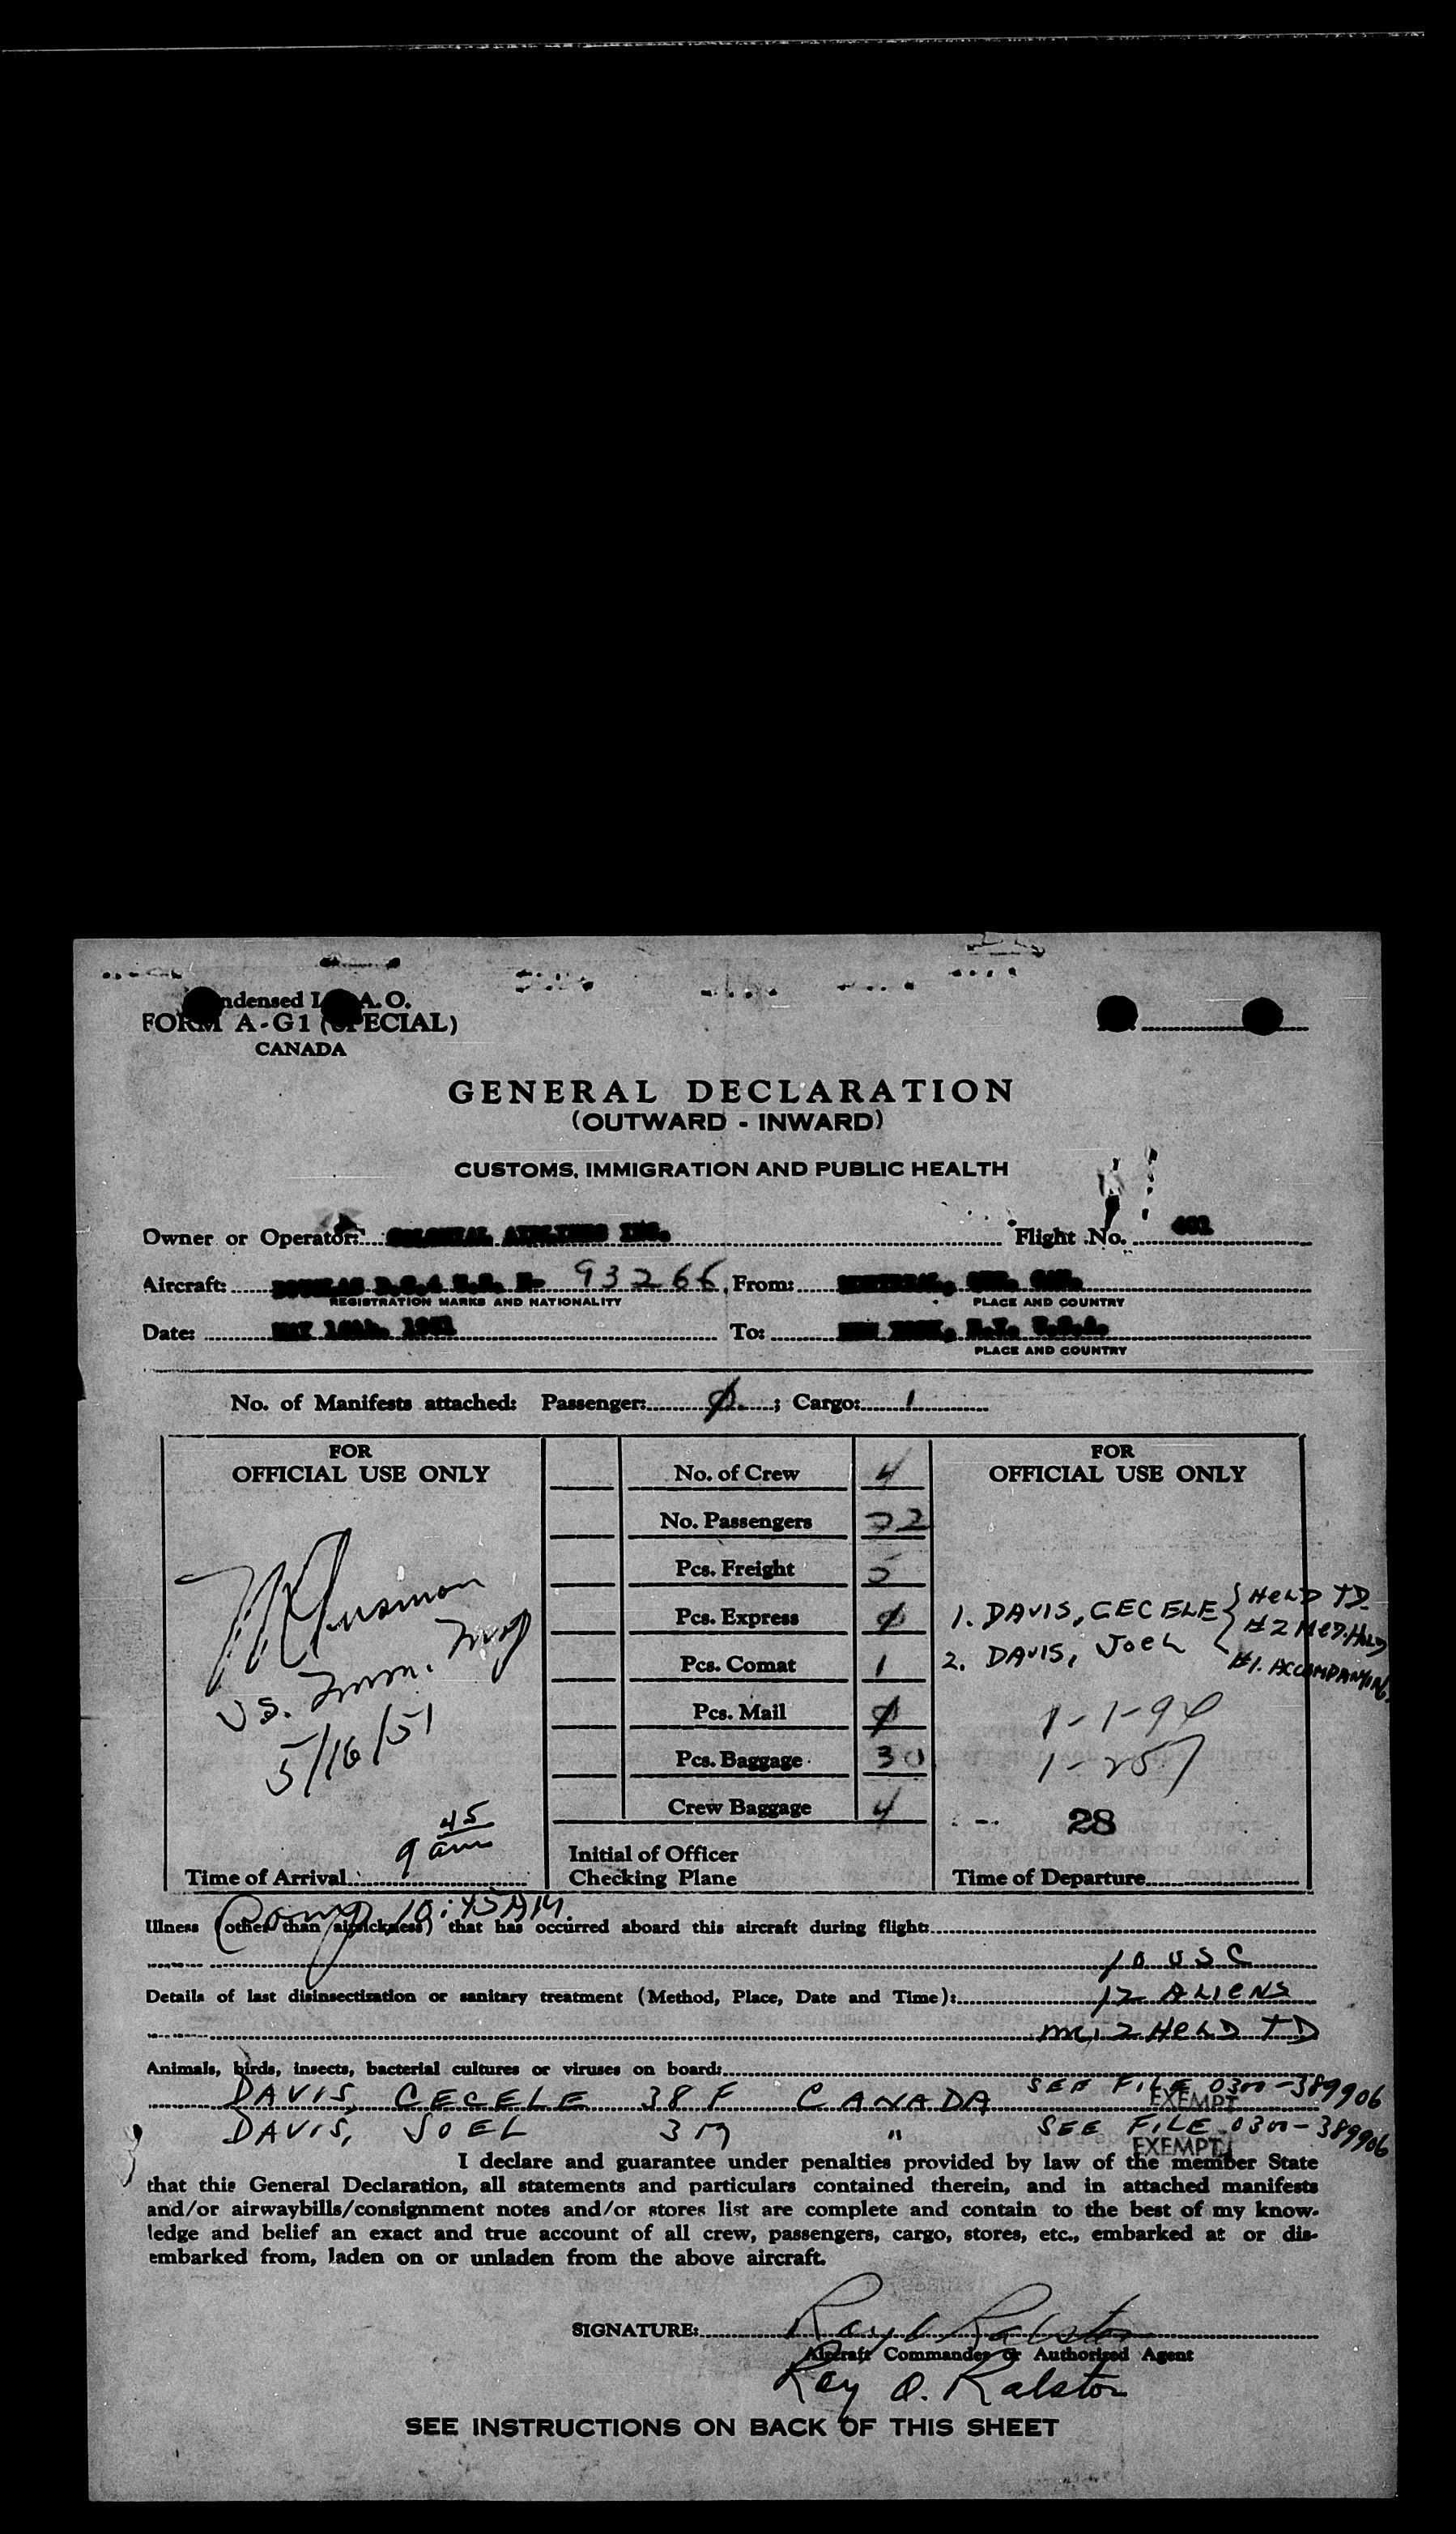 ndensed I A. O.
FORM A-G1 (SPECIAL)
CANADA
GENERAL DECLARATION
(OUTWARD - INWARD)
CUSTOMS, IMMIGRATION AND PUBLIC HEALTH
Owner or Operator: COLONIAL AIRLINES INC. Flight No. 401
Aircraft: DOUGLAS D.C.4 U.S. N. 93266 From: MONTREAL, QUE. CAN.
REGISTRATION MARKS AND NATIONALITY PLACE AND COUNTRY
Date: MAY 16th. 1951 To: NEW YORK, N.Y. U.S.A.
PLACE AND COUNTRY
No. of Manifests attached: Passenger: ; Cargo: 1
FOR
OFFICIAL USE ONLY
US. Imm. Insp
5/16/51
9 45 am
Time of Arrival
No. of Crew 4
No. Passengers 22
Pcs. Freight 5
Pcs. Express
Pcs. Comat 1
Pcs. Mail
Pcs. Baggage 30
Crew Baggage 4
Initial of Officer
Checking Plane
FOR
OFFICIAL USE ONLY
1. DAVIS, CECELE } HELD TD.
2. DAVIS, JOEL #2 MED. HOLD
#1. ACCOMPANYING
1-1-94
1-257
28
Time of Departure
Comp 10:45AM.
Illness (other than airsickness) that has occurred aboard this aircraft during flight:
10 USC
Details of last disinsectization or sanitary treatment (Method, Place, Date and Time): 12 ALIENS
2 HELD TD
Animals, birds, insects, bacterial cultures or viruses on board:
DAVIS, CECELE 38 F CANADA SEE FILE 0300-389906
EXEMPT
DAVIS, JOEL 3 M " SEE FILE 0300-389906
EXEMPT
I declare and guarantee under penalties provided by law of the member State
that this General Declaration, all statements and particulars contained therein, and in attached manifests
and/or airwaybills/consignment notes and/or stores list are complete and contain to the best of my know-
ledge and belief an exact and true account of all crew, passengers, cargo, stores, etc., embarked at or dis-
embarked from, laden on or unladen from the above aircraft.
SIGNATURE: Ray O. Ralston
Aircraft Commander or Authorised Agent
Ray O. Ralston
SEE INSTRUCTIONS ON BACK OF THIS SHEET